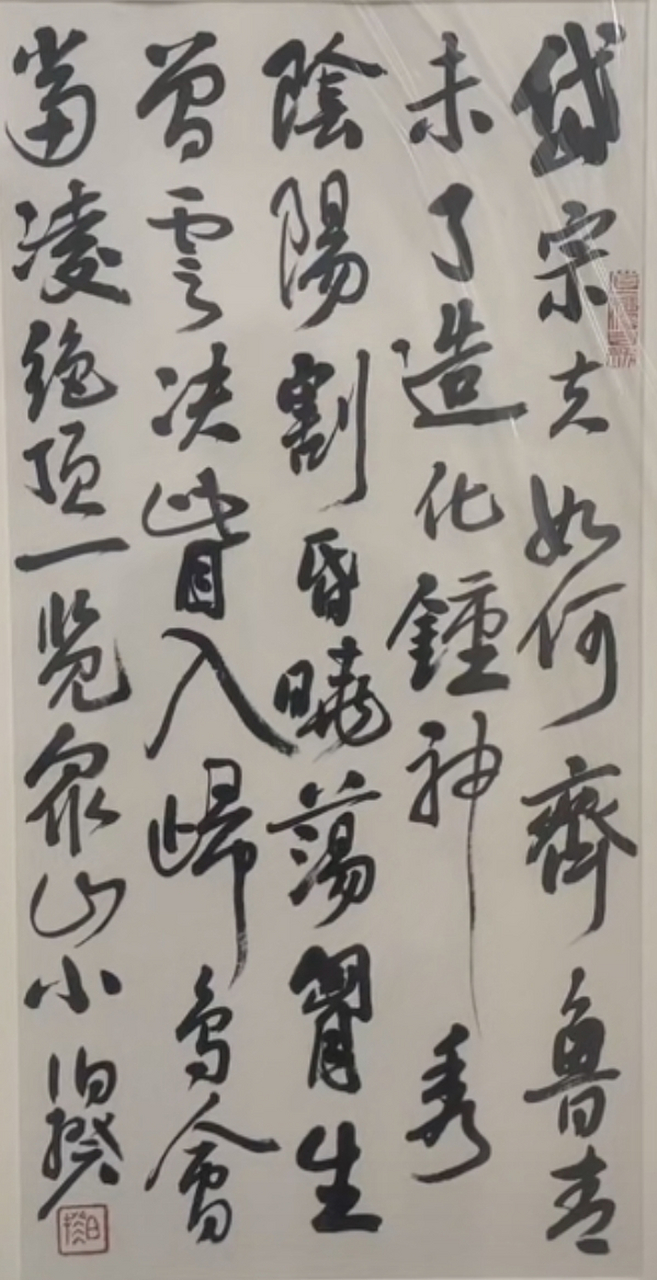 岱宗夫如何齊魯青
未了造化鍾神秀
陰陽割昏曉蕩胷生
曾雲决眥入歸鳥會
當凌絶頂一览眾山小伯揆